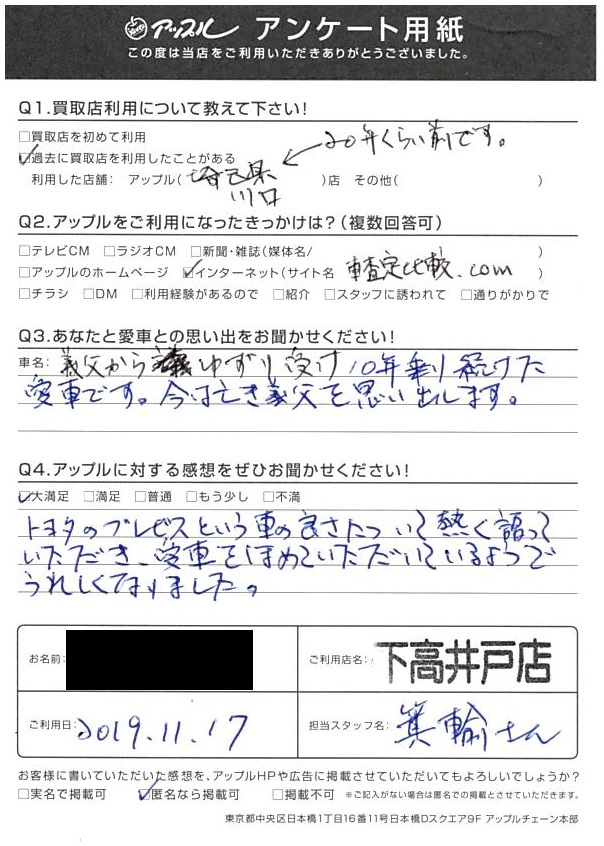 アップル アンケート用紙
この度は当店をご利用いただきありがとうございました。
Q1.買取店利用について教えて下さい!
□買取店を初めて利用
20年くらい前です。
☑過去に買取店を利用したことがある
利用した店舗: アップル( 埼玉県川口 )店 その他( )
Q2.アップルをご利用になったきっかけは?(複数回答可)
□テレビCM □ラジオCM □新聞・雑誌(媒体名/ )
□アップルのホームページ ☑インターネット(サイト名 車査定比較.com )
□チラシ □DM □利用経験があるので □紹介 □スタッフに誘われて □通りがかりで
Q3.あなたと愛車との思い出をお聞かせください!
車名: 義父からゆずり受け10年乗り続けた
愛車です。今は亡き義父を思い出します。
Q4.アップルに対する感想をぜひお聞かせください!
☑大満足 □満足 □普通 □もう少し □不満
トヨタのブレビスという車の良さについて熱く語って
いただき、愛車をほめていただいているようで
うれしくなりました。
お名前:
ご利用店名: 下高井戸店
ご利用日: 2019.11.17
担当スタッフ名: 箕輪さん
お客様に書いていただいた感想を、アップルHPや広告に掲載させていただいてもよろしいでしょうか?
□実名で掲載可 ☑匿名なら掲載可 □掲載不可 ※ご記入がない場合は匿名での掲載とさせていただきます。
東京都中央区日本橋1丁目16番11号日本橋Dスクエア9F アップルチェーン本部